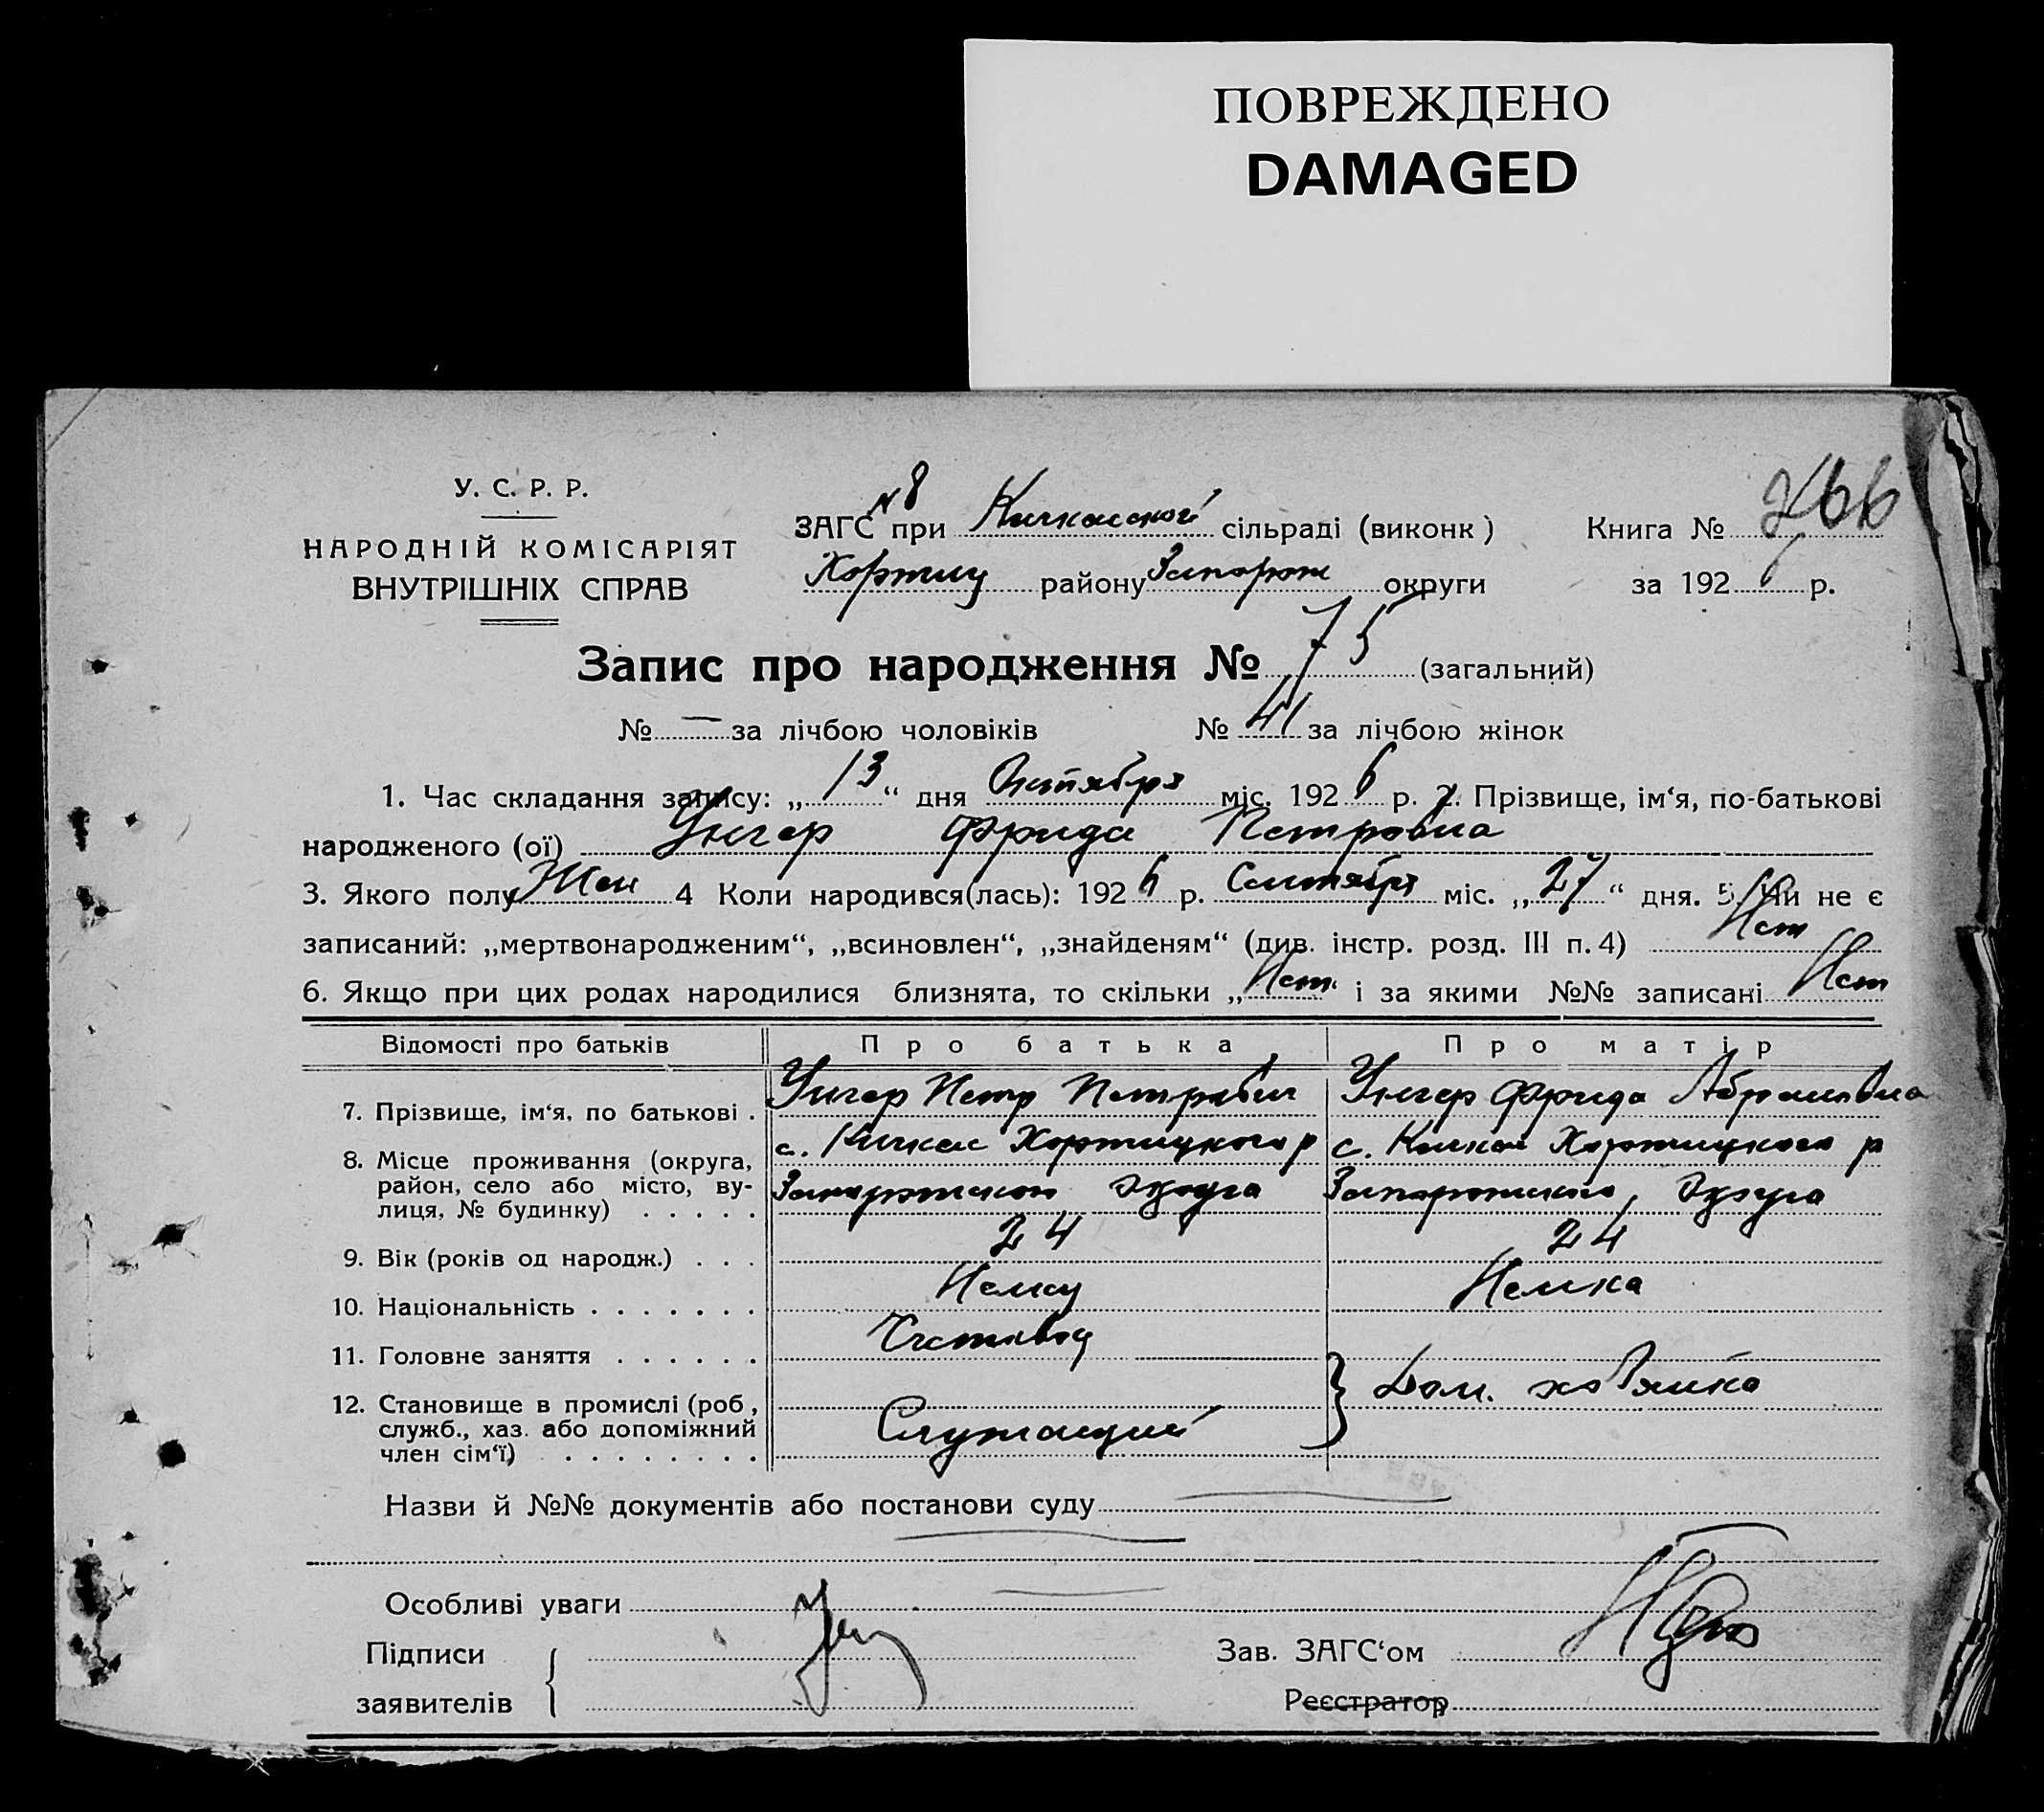 ПОВРЕЖДЕНО
DAMAGED
У. С. Р. Р.
НАРОДНІЙ КОМІСАРІЯТ
ВНУТРІШНІХ СПРАВ
N 8
ЗАГС при Кичкасской сільраді (виконк )
Хортиц району Запорож округи
Книга №
за 1926 р.
Запис про народження № 75 (загальний)
№ — за лічбою чоловіків № 41 за лічбою жінок
1. Час складання запису: „ 13 “ дня Октября міс. 1926 р. 2. Прізвище, ім‘я, по-батькові
народженого (ої) Унгер Фрида Петровна
3. Якого полу Жен 4 Коли народився(лась): 1926 р. Сентября міс. „ 27 “ дня. 5. Чи не є
записаний: „мертвонародженим“, „всиновлен“, „знайденям“ (див. інстр. розд. III п. 4) Нет
6. Якщо при цих родах народилися близнята, то скільки „ Нет “ і за якими №№ записані Нет
Відомості про батьків Про батька Про матір
7. Прізвище, ім‘я, по батькові . Унгер Петр Петрович Унгер Фрида Абрамовна
8. Місце проживання (округа, с. Кичкас Хортицкого р с. Кичкас Хортицкого р
район, село або місто, ву- Запорожской Округа Запорожского Округа
лиця, № будинку) . . . . .
9. Вік (років од народж.) . . . 24 24
10. Національність . . . . . . . Немец Немка
11. Головне заняття . . . . . . Счетовод Дом. хозяйка
12. Становище в промислі (роб , Служащий
служб., хаз. або допоміжний
член сім‘ї) . . . . . . . .
Назви й №№ документів або постанови суду
Особливі уваги
Підписи
заявителів
Зав. ЗАГС‘ом
Реєстратор